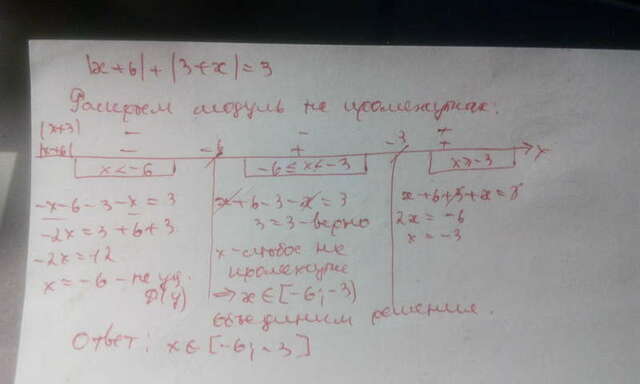 |x+6| + |3+x| = 3
Раскроем модуль на промежутках:
|x+3| − − +
|x+6| − -6 + -3 + x
x < -6 -6 ≤ x < -3 x ≥ -3
-x-6-3-x=3 x+6-3-x=3 x+6+3+x=3
-2x=3+6+3 3=3-верно 2x = -6
-2x=12 x-любое на x = -3
x=-6 - не уд. промежутке
D(y) => x∈[-6;-3)
объединим решения.
Ответ: x∈[-6;-3]